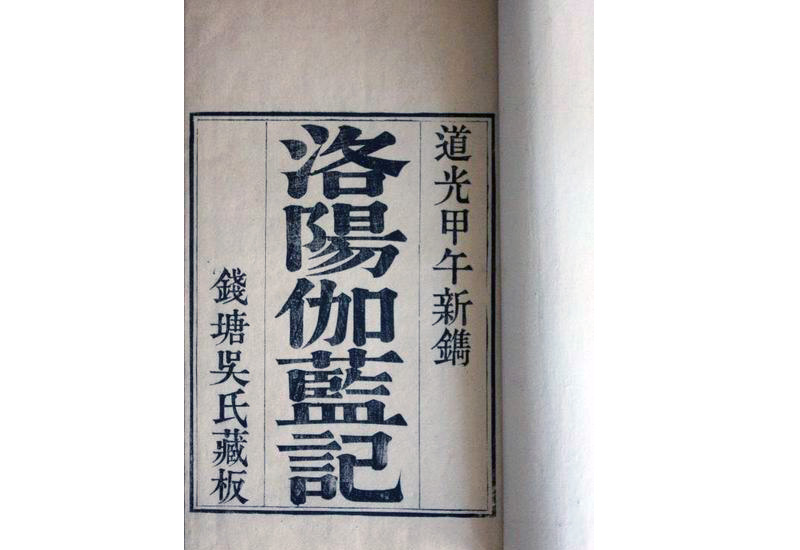 道光甲午新鐫
洛陽伽藍記
錢塘吳氏藏板